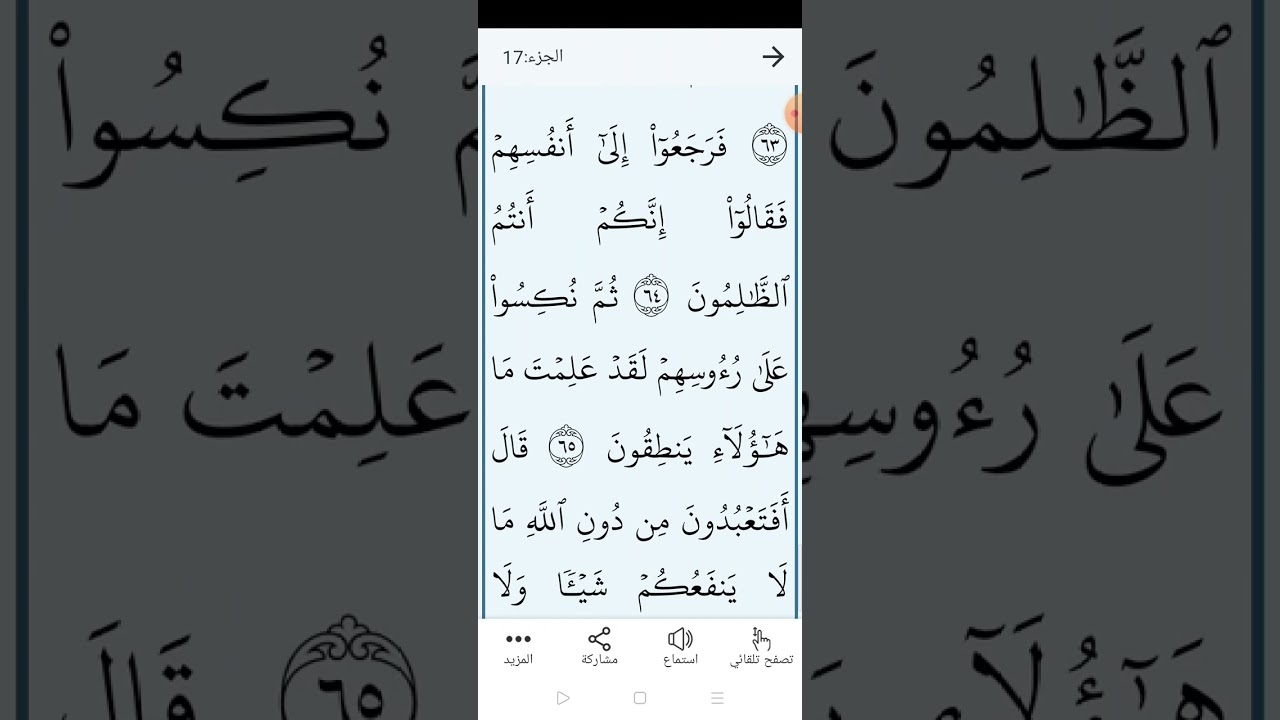 الجزء:17
٦٣ فَرَجَعُوٓا۟ إِلَىٰٓ أَنفُسِهِمْ
فَقَالُوٓا۟ إِنَّكُمْ أَنتُمُ
ٱلظَّـٰلِمُونَ ٦٤ ثُمَّ نُكِسُوا۟
عَلَىٰ رُءُوسِهِمْ لَقَدْ عَلِمْتَ مَا
هَـٰٓؤُلَآءِ يَنطِقُونَ ٦٥ قَالَ
أَفَتَعْبُدُونَ مِن دُونِ ٱللَّهِ مَا
لَا يَنفَعُكُمْ شَيْـًٔا وَلَا
تصفح تلقائي
استماع
مشاركة
المزيد